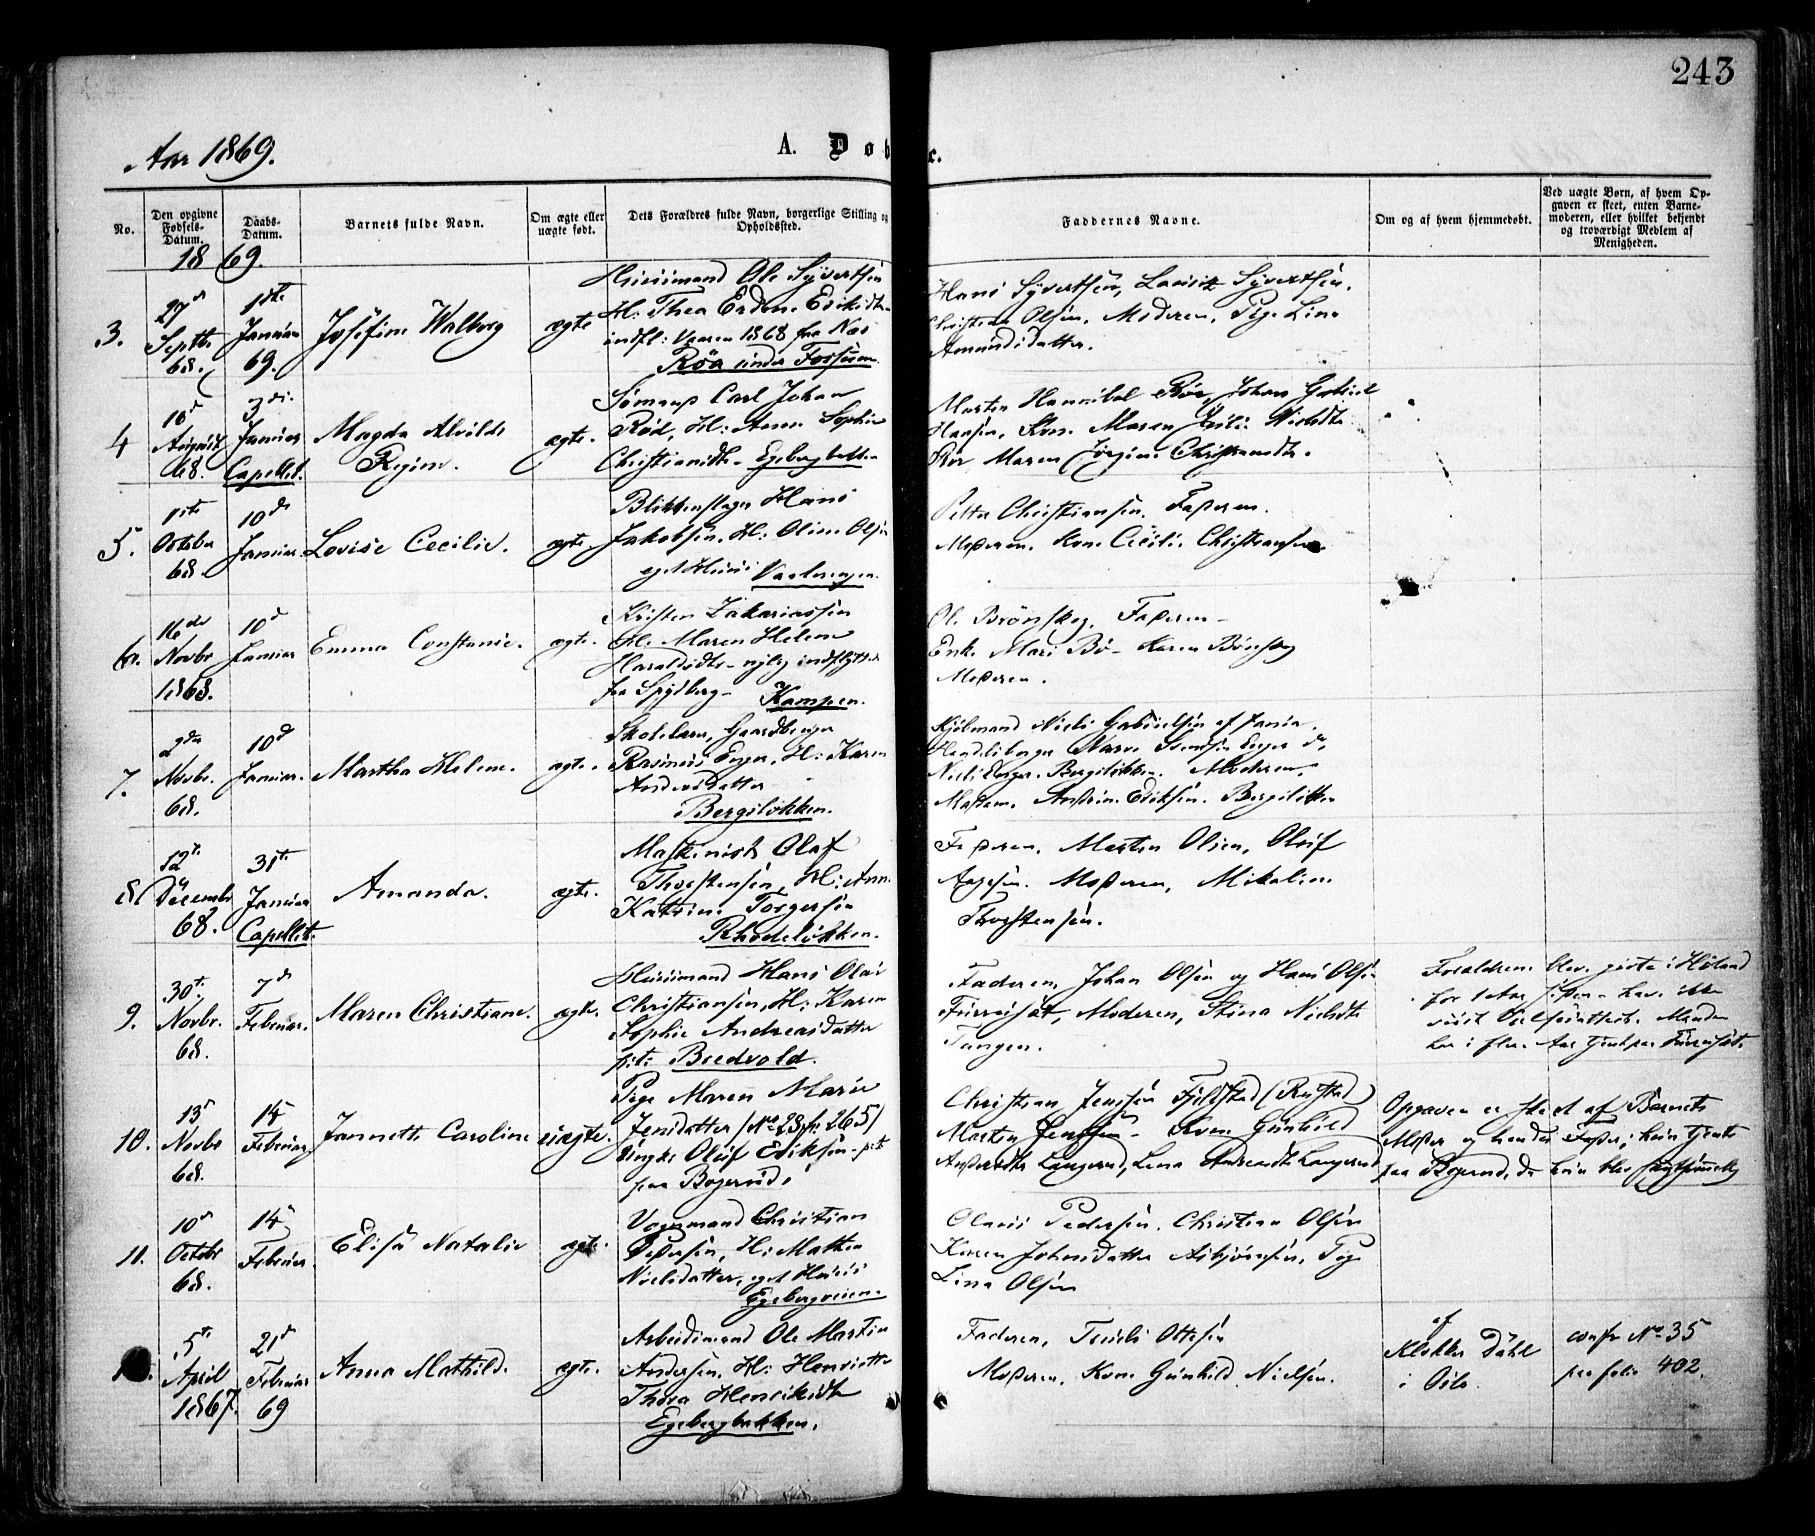 243
Aar 1869.
A. Døbte.
No.
Den opgivne Fødsels-Datum.
Daabs-Datum.
Barnets fulde Navn.
Om ægte eller uægte født.
Dets Forældres fulde Navn, borgerlige Stilling og Opholdssted.
Faddernes Navne.
Om og af hvem hjemmedøbt.
Ved uægte Børn, af hvem Opgaven er skeet, enten Barnemoderen, eller hvilket bekjendt og troværdigt Medlem af Menigheden.
1869.
3.
27d
Septbr
68.
1ste
Januar
69.
Josefine Walborg
ægte
Huusmand Ole Syvertsen
H: Thea
indfl: Vaaren 1868 fra Næs
Röa under Fossum.
Hans Syvertsen, Lauritz Syvertsen.
Christian Olsen. Moderen. Pige Lina
Amundsdatter.
4
10d
August
68.
3die
Januar
Capellet.
Magda Alvilde
Regine.
ægte.
Sömand Carl Johan
Röd, H: Anne Sophie
Christiansdtr Egebergbakken
Morten Hannibal Röer, Johan Gabriel
Hansen, Kone Maren Nielsdtr
Maren Jörgine Christiansdtr.
5.
1ste
October
68
10de
Januar.
Lovise Cecilie.
ægte.
Blikkenslager Hans
Jakobsen, H: Oline Olsen
eget Huus Vaalerengen.
Petter Christiansen. Faderen.
Moderen. Kone Cecilie Christiansen.
6.
16de
Novbr
1868.
10d
Januar
Emma Constanse.
ægte.
Kristen Zakariassen
H: Maren Helene
Haraldsdtr nylig indflyttet
fra Spydberg Kampen.
Ole Brönskog. Faderen
Enke Mari Bö Karen Brönskog
Moderen.
7.
2den
Novbr.
68.
10d
Januar.
Martha Helene.
ægte.
Skolelærer, Gaardbruger
Rasmus Enger, H: Karen
Andersdatter
Bergslökken.
Niels Gabrielsen af
Narve Svendsen Enger
Niels Enger. Bergslökken. Moderen.
Eriksen. Bergslökken
8
12te
Decembr
68.
31te
Januar
Capellet.
Amanda.
ægte.
Maskinist Olaf
Thorstensen, H: Anne
Katrine Torgersen
Rhodelökken.
Faderen. Morten Olsen, Oluf
Aagesen. Moderen, Mikaline
Thorstensen.
9.
30te
Novbr.
68.
7de
Februar.
Maren Christiane.
ægte.
Huusmand Hans Olai
Christiansen, H: Karen
Sophie Andreasdatter
pt: Bredvold.
Faderen, Johan Olsen og Hans Olsen
Furuset, Moderen, Stina Nielsdtr
Tangen.
Forældrene blev gifte i Höland
for 1 Aar siden har ikke
viist Vielsesattest. Manden
har i flere Aar tjent paa Furuset.
10.
13d
Novbr
68.
14
Februar
Jannette Caroline
uægte.
Pige Maren Marie
Jensdatter (No 23 fr. 265)
Ungk. Oluf Eriksen
paa Bogerud.
Christian Jensen Fjeldstad (Rustad)
Morten Jensen Kone Gunhild
Andersdtr Langerud, Lina Andersdtr Langerud
Opgaven er skeet af Barnets
Moder og hendes Fader; hun tjente
paa Bogerud, da hun blev
11.
10d
Octobr
68.
14
Februar.
Elise Natalie
ægte.
Vognmand Christian
Pedersen, H: Mathea
Nielsdatter, eget Huus
Egebergveien.
Olaus Pedersen. Christian Olsen
Karen Johnsdatter Asbjörnsen, Pige
Lina Olsen
5te
April
1867.
21d
Februar
69
Anna Mathilde.
ægte.
Arbeidsmand Ole Martin
Andersen, H: Henriette
Thora Henriksdtr
Egebergbakken.
Faderen, Ottesen
Moderen, Kone Gunhild Nielsen.
af
Klokker Dahl
i Oslo.
confr No 35
paa folio 402.